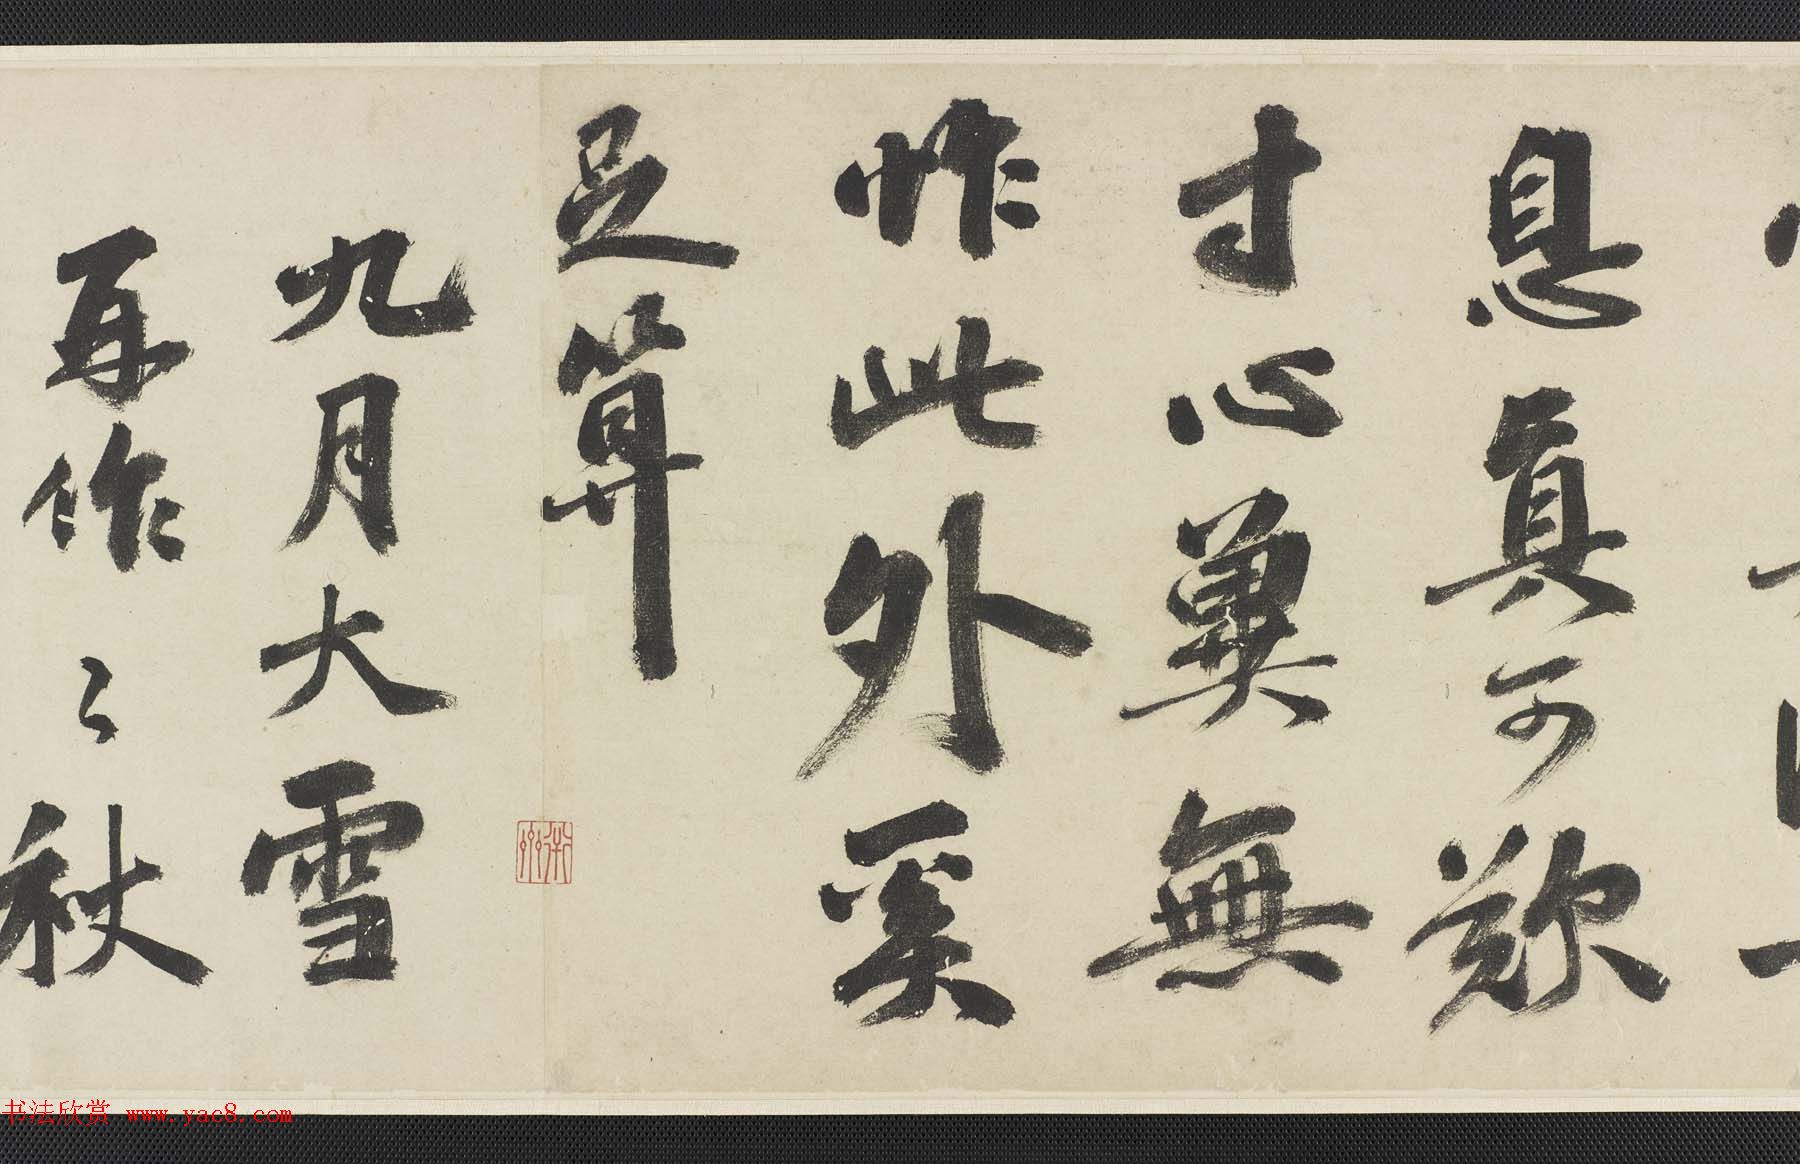 息真可歎
寸心冀無
怍此外奚
足算
九月大雪
再作〻秋
书法欣赏 www.yac8.com